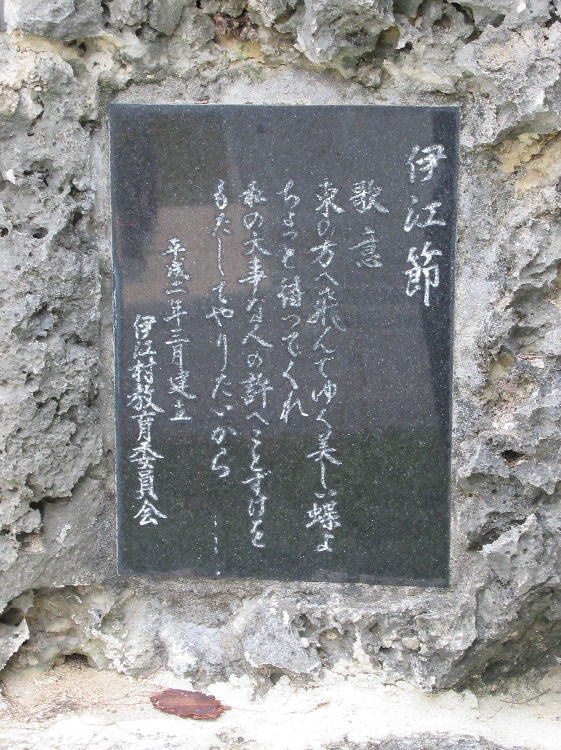 伊江節
歌意
東の方へ飛んでゆく美しい蝶よ
ちょっと待ってくれ
私の大事な人の許へことずけを
もたしてやりたいから……
平成二年三月建立
伊江村教育委員会